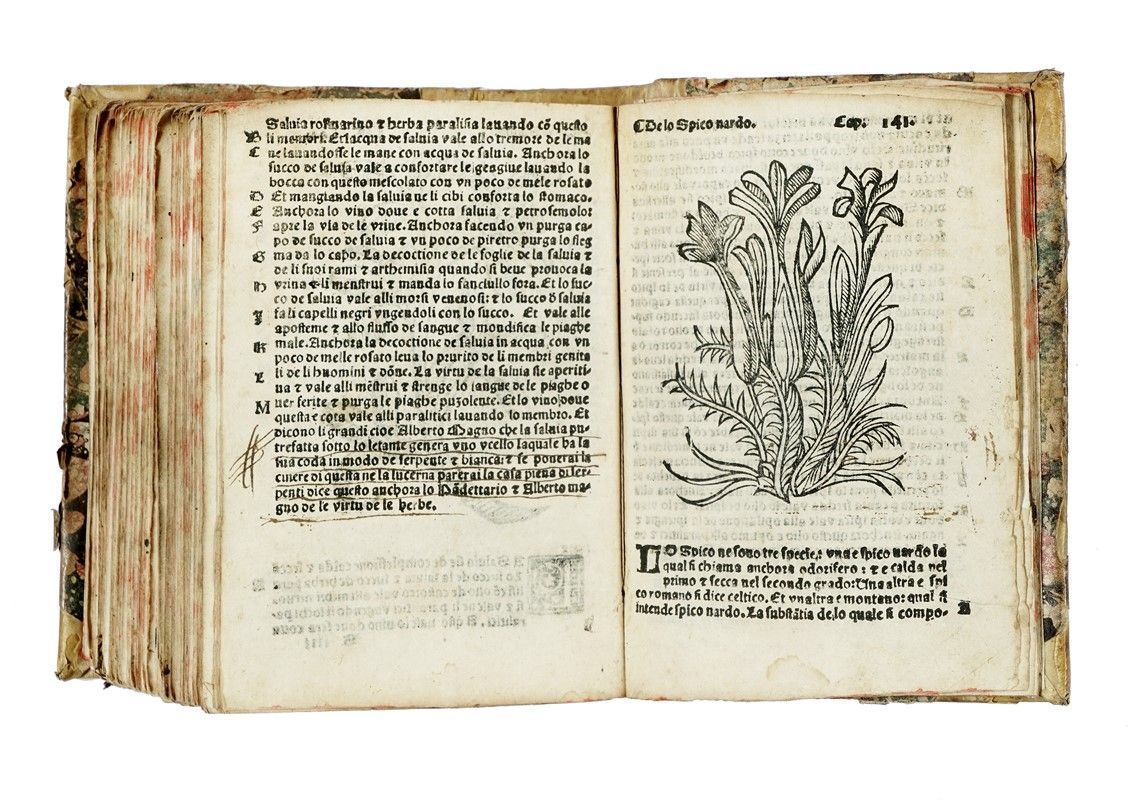 Saluia rosmarino ⁊ herba paralisia lauando cō questo
B li membri. Et lacqua de saluia vale allo tremore de le ma
C ne lauandosse le mane con acqua de saluia. Anchora lo
succo de saluia vale a confortare le gengiue lauando la
bocca con questo mescolato con vn poco de mele rosato
D Et mangiando la saluia ne li cibi conforta lo stomaco.
E Anchora lo vino doue e cotta saluia ⁊ petrosemolo:
F apre la via de le vrine. Anchora facendo vn purga ca-
po de succo de saluia ⁊ vn poco de piretro purga lo fleg
G ma da lo capo. La decoctione de le foglie de la saluia ⁊
de li suoi rami ⁊ arthemisia quando si beue prouoca la
H vrina ⁊ li menstrui ⁊ manda lo fanciullo fora. Et lo suc-
co de saluia vale alli morsi venenosi: ⁊ lo succo d saluia
I fa li capelli negri vngendoli con lo succo. Et vale alle
aposteme ⁊ allo fluffo de sangue ⁊ mondifica le piaghe
K male. Anchora la decoctione de saluia in acqua con vn
poco de melle rosato leua lo prurito de li membri genita
L li de li huomini ⁊ dōne. La virtu de la saluia sie aperiti-
ua ⁊ vale alli mēstrui ⁊ strenge lo sangue de le piaghe o
M uer ferite ⁊ purga le piaghe puzolente. Et lo vino doue
questa e cota vale alli paralitici lauando lo membro. Et
dicono li grandi cioe Alberto Magno che la saluia pu-
trefatta sotto lo letame genera vno vcello laquale ha la
sua coda in modo de serpente ⁊ bianca: ⁊ se ponerai la
cinere di questa ne la lucerna parerai la casa piena di ser-
penti dice questo anchora lo Pādettario ⁊ Alberto ma-
gno de le virtu de le herbe.
De lo Spico nardo. Cap. 141.
LO Spico ne sono tre specie: vna e spico nardo la
qual si chiama anchora odorifero: ⁊ e calda nel
primo ⁊ secca nel secondo grado: Una altra e spi
co romano si dice celtico. Et vnaltra e montano: qual si
intende spico nardo. La substātia de lo quale si compo- A